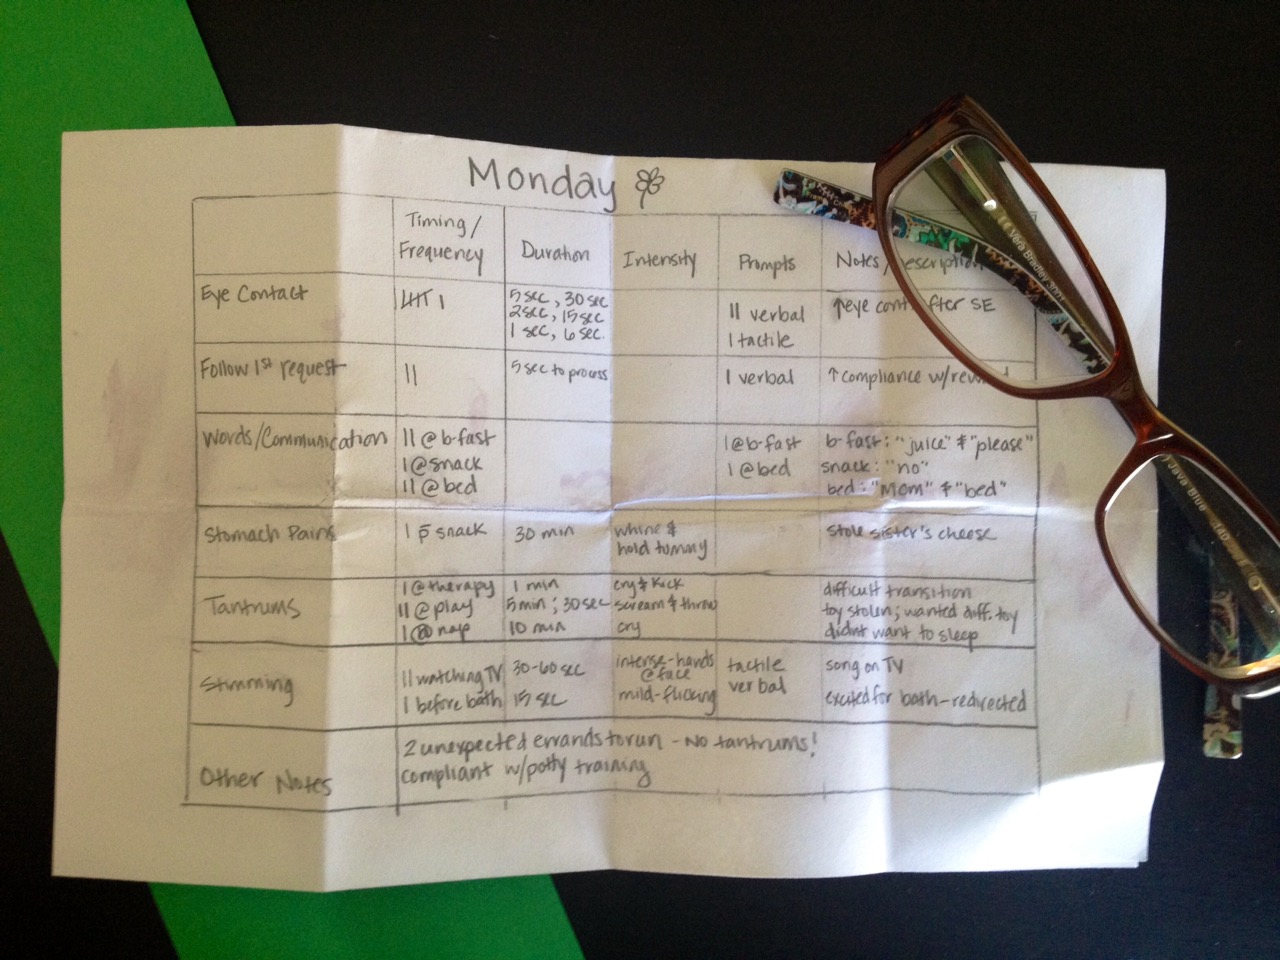 Monday
Timing/
Frequency
Duration
Intensity
Prompts
Notes/
Eye Contact
5 sec, 30 sec
2 sec, 15 sec
1 sec, 6 sec.
II verbal
I tactile
↑eye SE
Follow 1st request
II
5 sec to process
I verbal
↑ compliance w/
Words/Communication
II @ b-fast
I @ snack
II @ bed
I @ b-fast
I @ bed
b-fast: "juice" & "please"
snack: "no"
bed: "Mom" & "bed"
Stomach Pains
I p̄ snack
30 min
whine &
hold tummy
stole sister's cheese
Tantrums
I @ therapy
II @ play
I @ nap
1 min
5 min; 30 sec
10 min
cry & kick
scream & throw
cry
difficult transition
toy stolen; wanted diff. toy
didnt want to sleep
Stimming
II watching TV
I before bath
30-60 sec
15 sec
intense-hands
@ face
mild-flicking
tactile
verbal
song on TV
excited for bath-redirected
Other Notes
2 unexpected errands to run - No tantrums!
compliant w/potty training
Vera Bradley
Java Blue